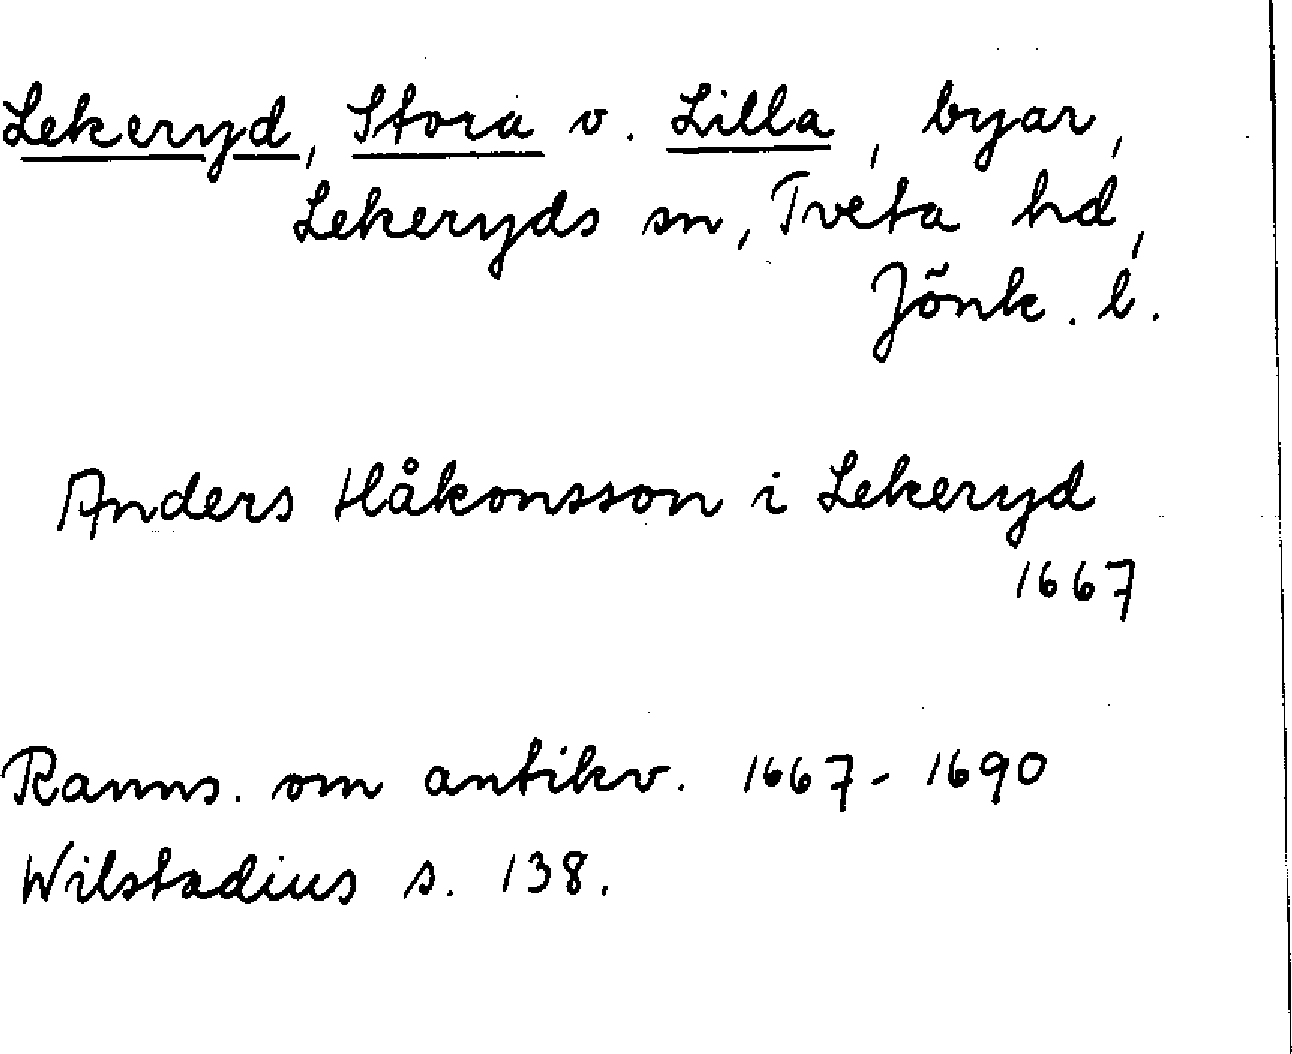 Lekeryd, Stora o. Lilla, byar,
Lekeryds sn, Tveta hd,
Jönk. l.
Anders Håkonsson i Lekeryd
1667
Ranns. om antikv. 1667-1690
Wilstadius s. 138.